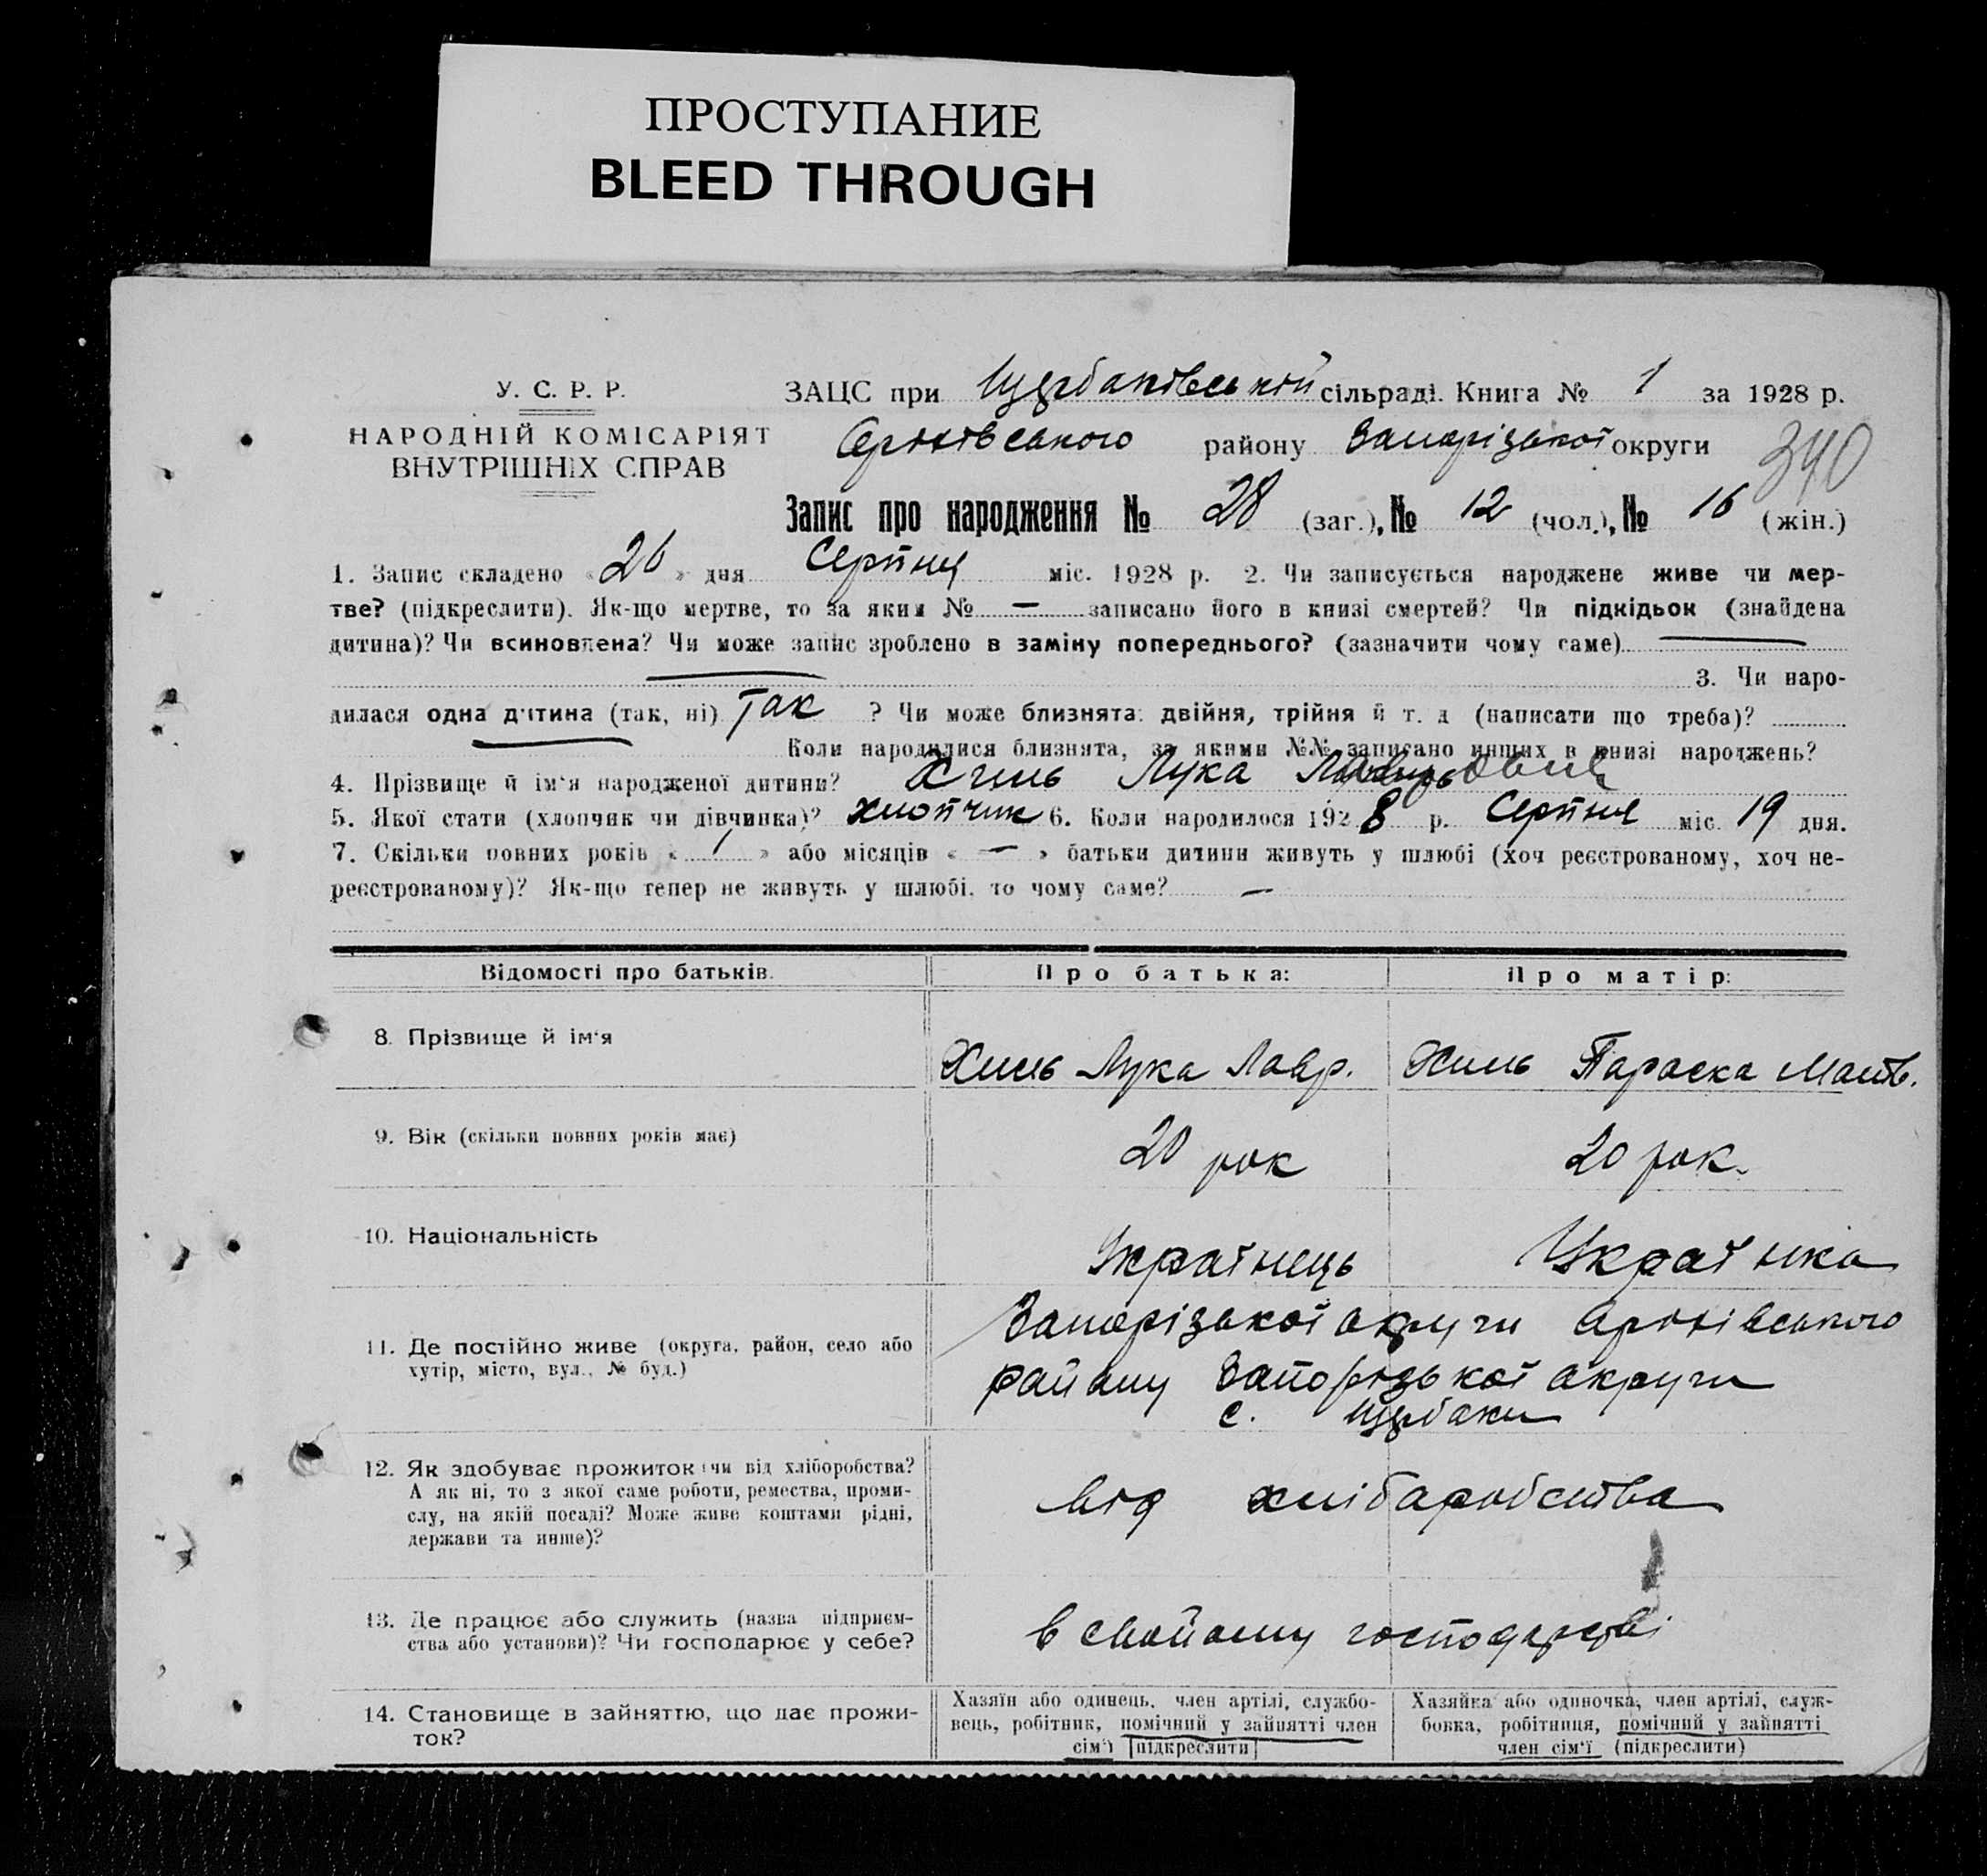 ПРОСТУПАНИЕ
BLEED THROUGH
У. С. Р. Р.
НАРОДНІЙ КОМІСАРІЯТ
ВНУТРІШНІХ СПРАВ
ЗАЦС при Щербаківській сільраді. Книга № 1 за 1928 р.
Оріхівського району Запорізької округи
340
Запис про народження № 28 (заг.), № 12 (чол.), № 16 (жін.)
1. Запис складено « 26 » дня Серпня міс. 1928 р. 2. Чи записується народжене живе чи мер-
тве? (підкреслити). Як-що мертве, то за яким № — записано його в книзі смертей? Чи підкідьок (знайдена
дитина)? Чи всиновлена? Чи може запис зроблено в заміну попереднього? (зазначити чому саме)
3. Чи наро-
дилася одна дитина (так, ні) Так ? Чи може близнята: двійня, трійня й т. д (написати що треба)?
Коли народилися близнята, за якими №№ записано инших в книзі народжень?
4. Прізвище й ім'я народженої дитини? Хиль Лука
5. Якої стати (хлопчик чи дівчинка)? хлопчик 6. Коли народилося 1928 р. Серпня міс. 19 дня.
7. Скільки повних років « 1 » або місяців « — » батьки дитини живуть у шлюбі (хоч реєстрованому, хоч не-
реєстрованому)? Як-що тепер не живуть у шлюбі, то чому саме? —
Відомості про батьків. Про батька: Про матір:
8. Прізвище й ім'я Хиль Лука Лавр. Хиль Параска Матв.
9. Вік (скільки повних років має) 20 рок 20 рок.
10. Національність Українець Українка
11. Де постійно живе (округа, район, село або
хутір, місто, вул., № буд.)
Запорізької округи Оріхівського
району Запорізької округи
с. Щербаки
12. Як здобуває прожиток (чи від хліборобства?
А як ні, то з якої саме роботи, ремества, проми-
слу, на якій посаді? Може живе коштами рідні,
держави та инше)?
від хліборобства
13. Де працює або служить (назва підприєм-
ства або установи)? Чи господарює у себе?
в свойому господарстві
14. Становище в зайняттю, що дає прожи-
ток?
Хазяїн або одинець, член артілі, службо-
вець, робітник, помічний у зайнятті член
сім'ї (підкреслити)
Хазяйка або одиночка, член артілі, служ-
бовка, робітниця, помічний у зайнятті
член сім'ї (підкреслити)